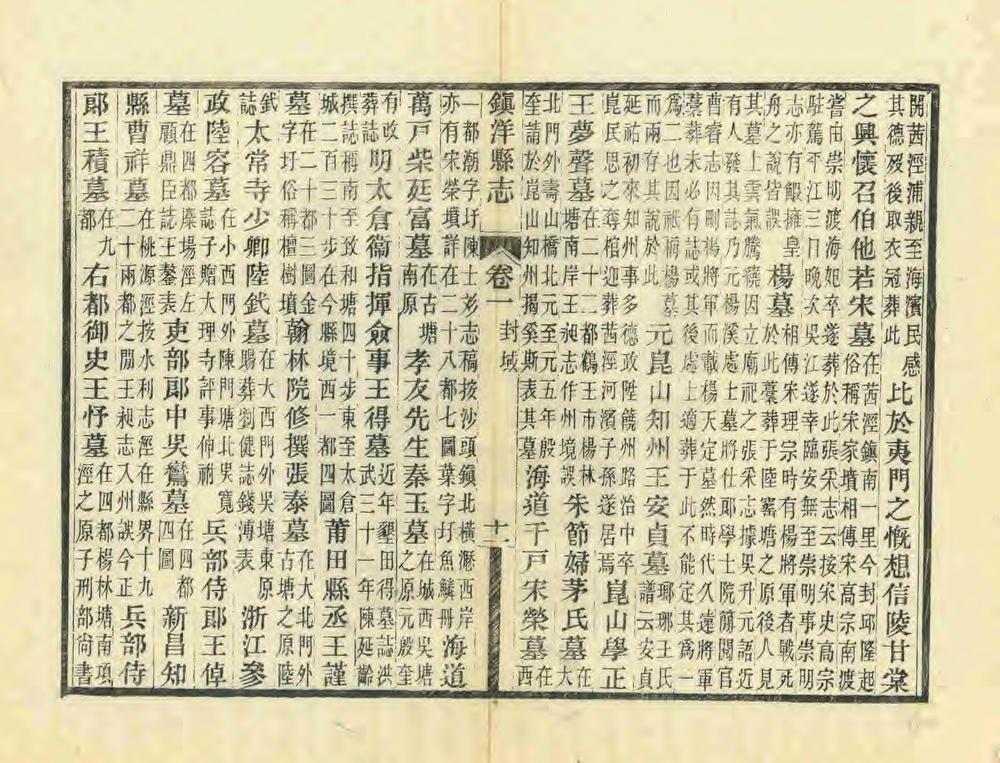 開茜涇浦親至海濱民感其德歿後取衣冠葬此比於夷門之慨想信陵甘棠
之興懷召伯他若宋墓在茜涇鎮南一里今封邱隆起俗稱宋家墳相傳宋高宗南渡
嘗由崇明渡海妃卒遂葬於此張采志云按宋史高宗駐蹕平江三日晚次吳江遂幸臨安無至崇明事崇明
志亦有鰕擁皇舟之說皆誤楊墓相傳宋理宗時有楊將軍者戰死於此藁葬于陸窰塘之原後人見
其墓上雲氣騰曉因立廟祀之張采志據吳升元語近有人發其誌乃元楊溪處士墓將仕郎學士院簡閱官
曹睿志因刪楊將軍而載楊天定墓然時代久遠將軍藁葬未必有誌或其後處士適葬于此不能定其為一
為二也因祇稱楊墓而兩存其說於此元崑山知州王安貞墓瑯琊王氏譜云安貞
延祐初來知州事多德政陞饒州路治中卒崑民思之奪棺迎葬茜涇河濱子孫遂居焉崑山學正
王夢聲墓在二十二都鶴王市楊林塘南岸王昶志作州境誤朱節婦茅氏墓在大
北門外壽山橋北元至元五年殷奎請於崑山知州揭奚斯表其墓海道千戶宋榮墓在西
鎮洋縣志 卷一 封域 十二
一都潮字圩陳士彣志稿按沙頭鎮北橫瀝西岸亦有宋榮墳詳在二十八都七圖葉字圩魚鱗冊海道
萬戶柴廷富墓在古塘南原孝友先生秦玉墓在城西吳塘之原元殷奎
有改葬誌明太倉衞指揮僉事王得墓近年墾田得墓誌洪武三十一年陳延齡
撰誌稱南至致和塘四十步東至太倉城二百三十步在今縣境西一都四圖莆田縣丞王謹
墓在二十都三圖金字圩俗稱檀樹墳翰林院修撰張泰墓在大北門外古塘之原陸
釴誌太常寺少卿陸釴墓在大西門外吳塘東原賜葬劉健誌錢溥表浙江參
政陸容墓在小西門外陳門塘北吳寬誌子贈大理寺評事伸祔兵部侍郎王倬
墓在四都糜場涇左顧鼎臣誌王鏊表吏部郎中吳鸞墓在四都四圖新昌知
縣曹祥墓在桃源涇按水利志涇在縣界十九二十兩都之閒王昶志入州誤今正兵部侍
郎王積墓在九都右都御史王忬墓在四都楊林塘南項涇之原子刑部尙書